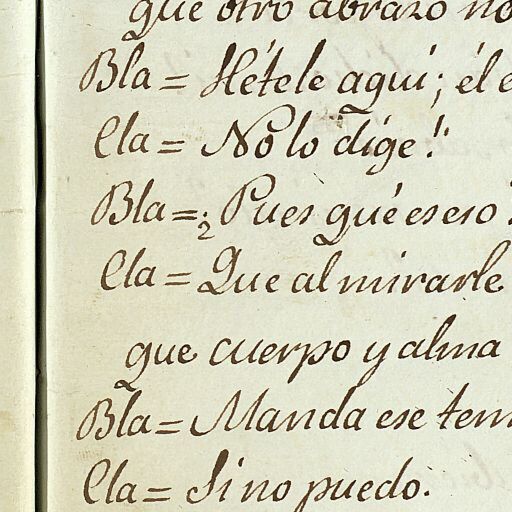 que otro abrazo no
Bla = Hétele aquí; él e
Cla = No lo dige!
Bla = ¿Pues qué es eso?
Cla = Que al mirarle
que cuerpo y alma
Bla = Manda ese tem
Cla = Si no puedo.